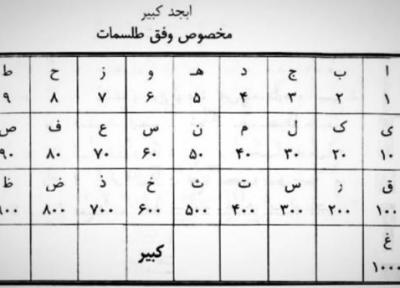 ابجد کبیر
مخصوص وفق طلسمات
ا ب ج د هـ و ز ح ط
۱ ۲ ۳ ۴ ۵ ۶ ۷ ۸ ۹
ی ک ل م ن س ع ف ص
۱۰ ۲۰ ۳۰ ۴۰ ۵۰ ۶۰ ۷۰ ۸۰ ۹۰
ق ر س ت ث خ ذ ض ظ
۱۰۰ ۲۰۰ ۳۰۰ ۴۰۰ ۵۰۰ ۶۰۰ ۷۰۰ ۸۰۰
غ کبیر
۱۰۰۰